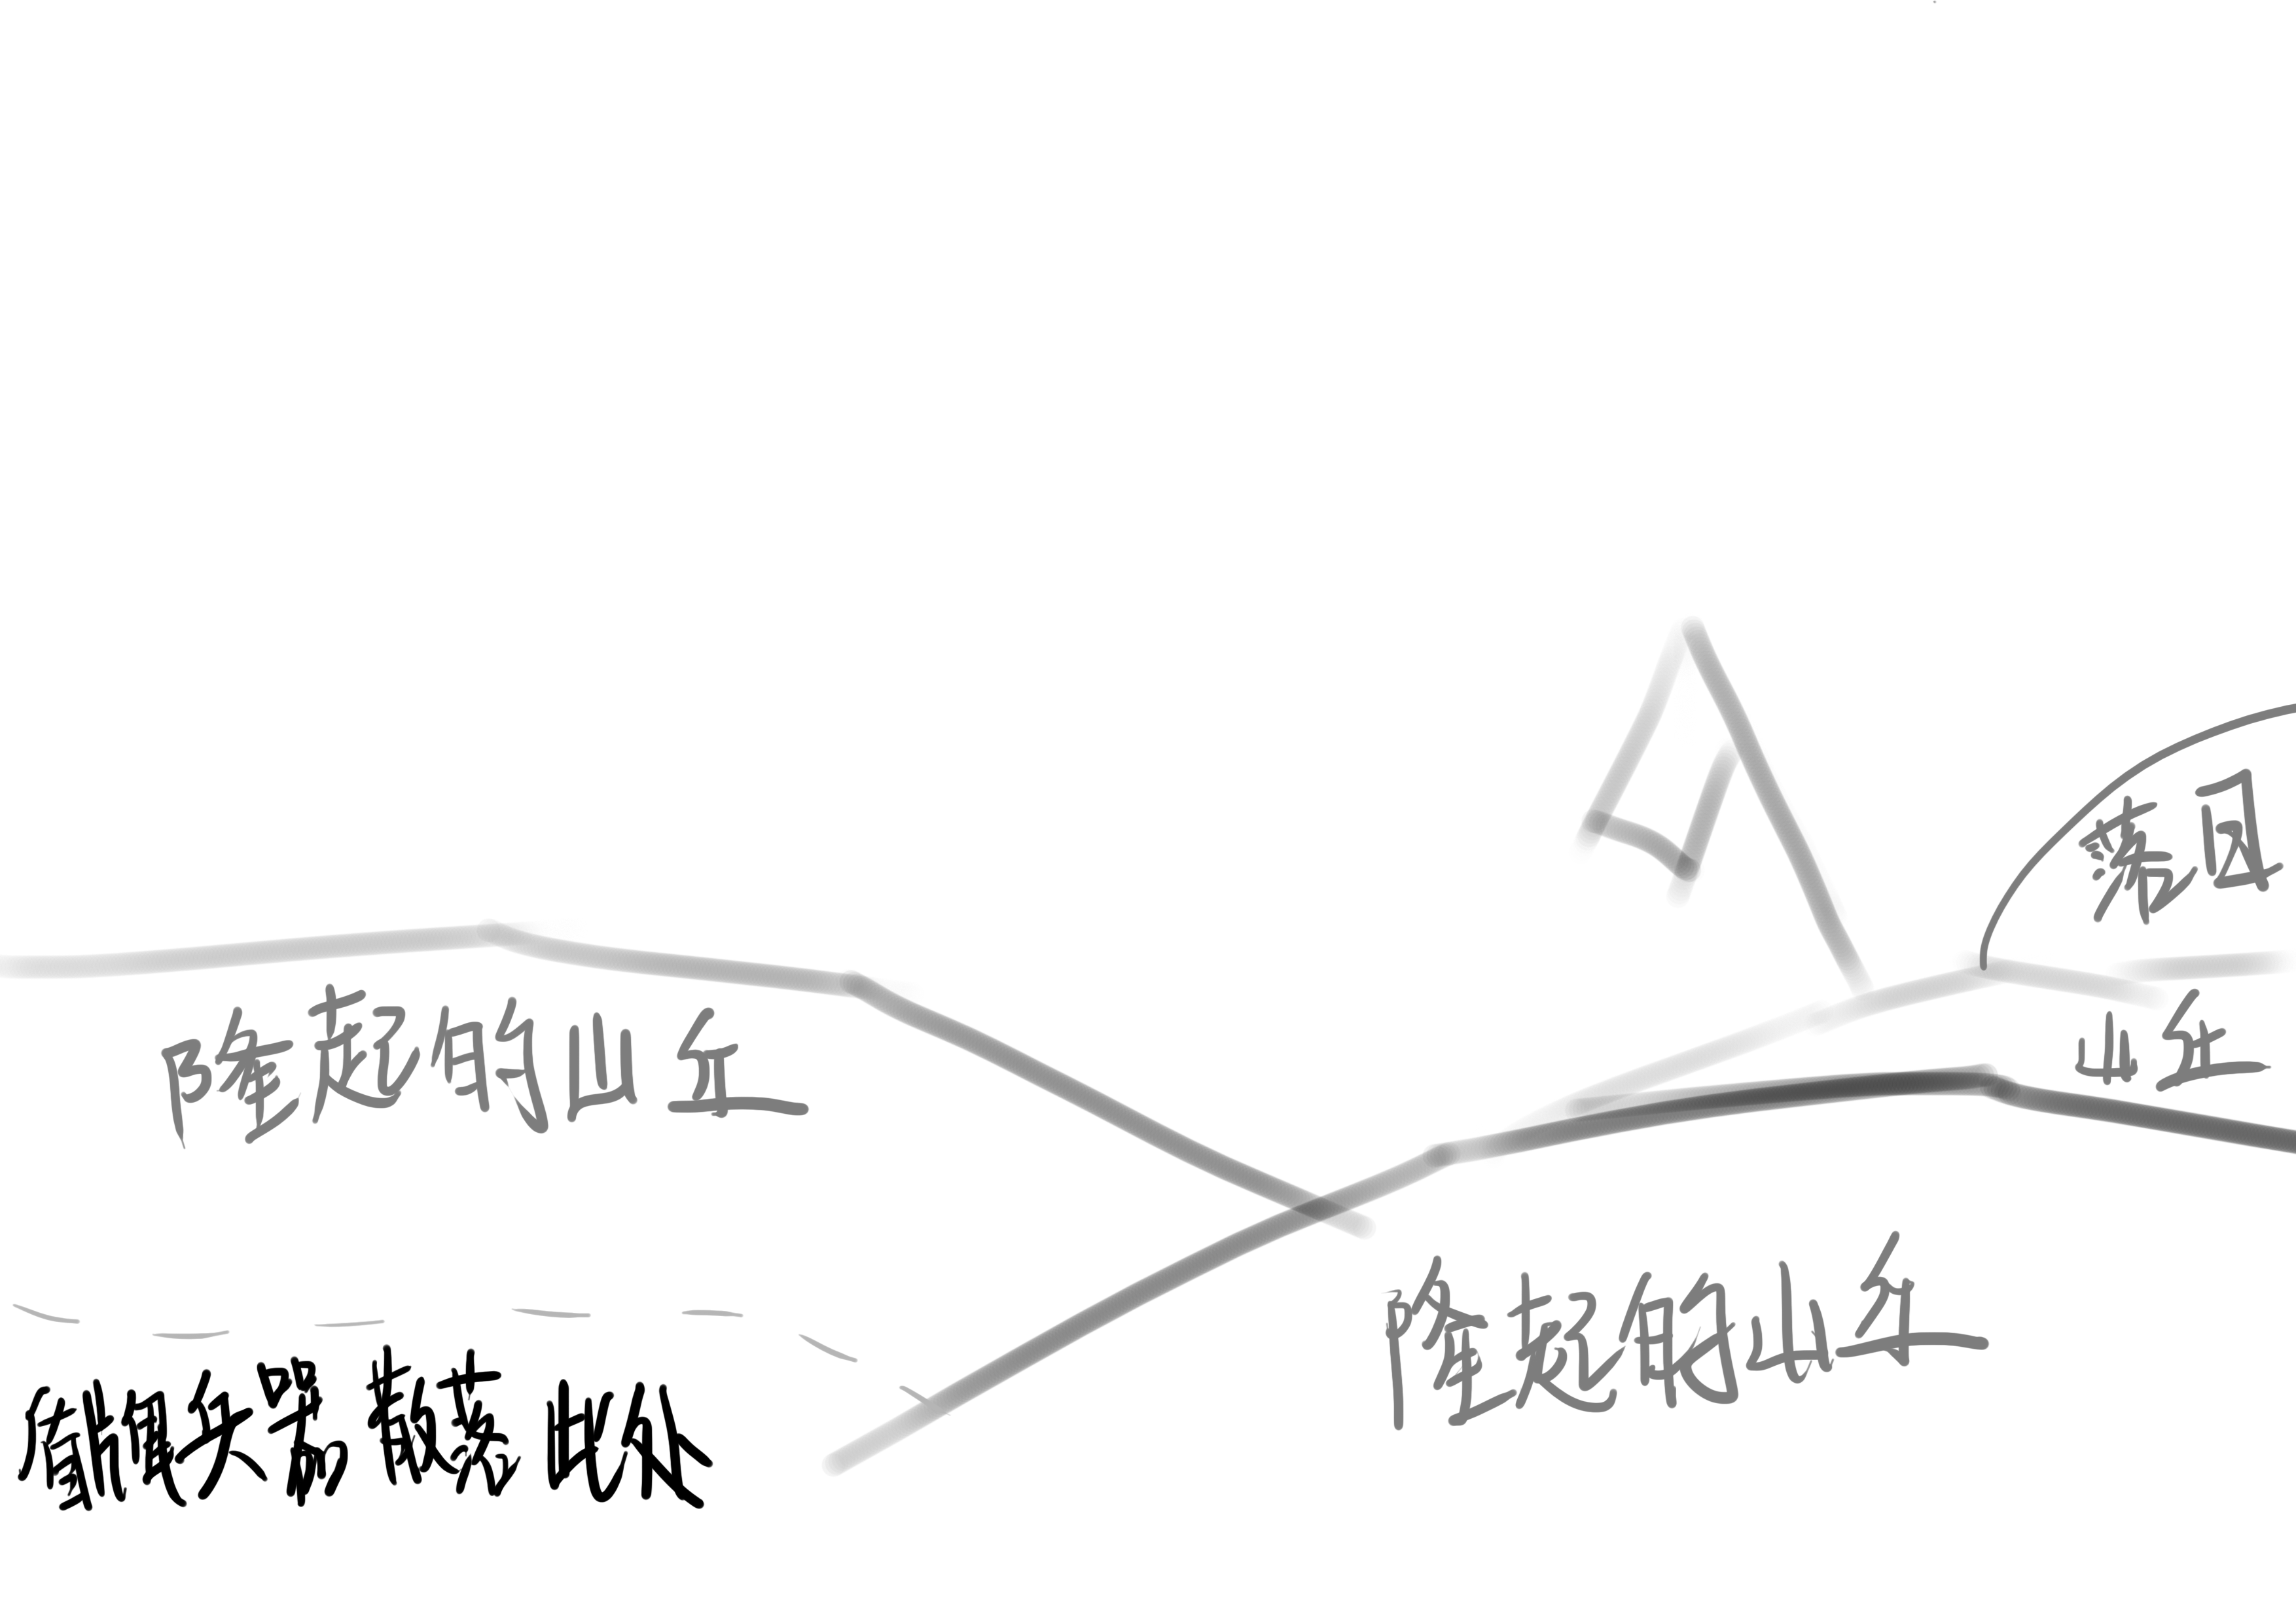 落日
隆起的山丘
山丘
隆起的山丘
散落此处